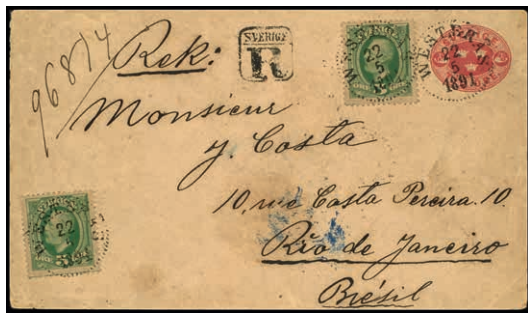 96814
Rek:
SVERIGE
R
WESTERÅS
22
5
1891
Monsieur
J. Costa
10, rue Costa Pereira. 10
Rio de Janeiro
Brésil
SVERIGE
22
5
ÖRE
22
5